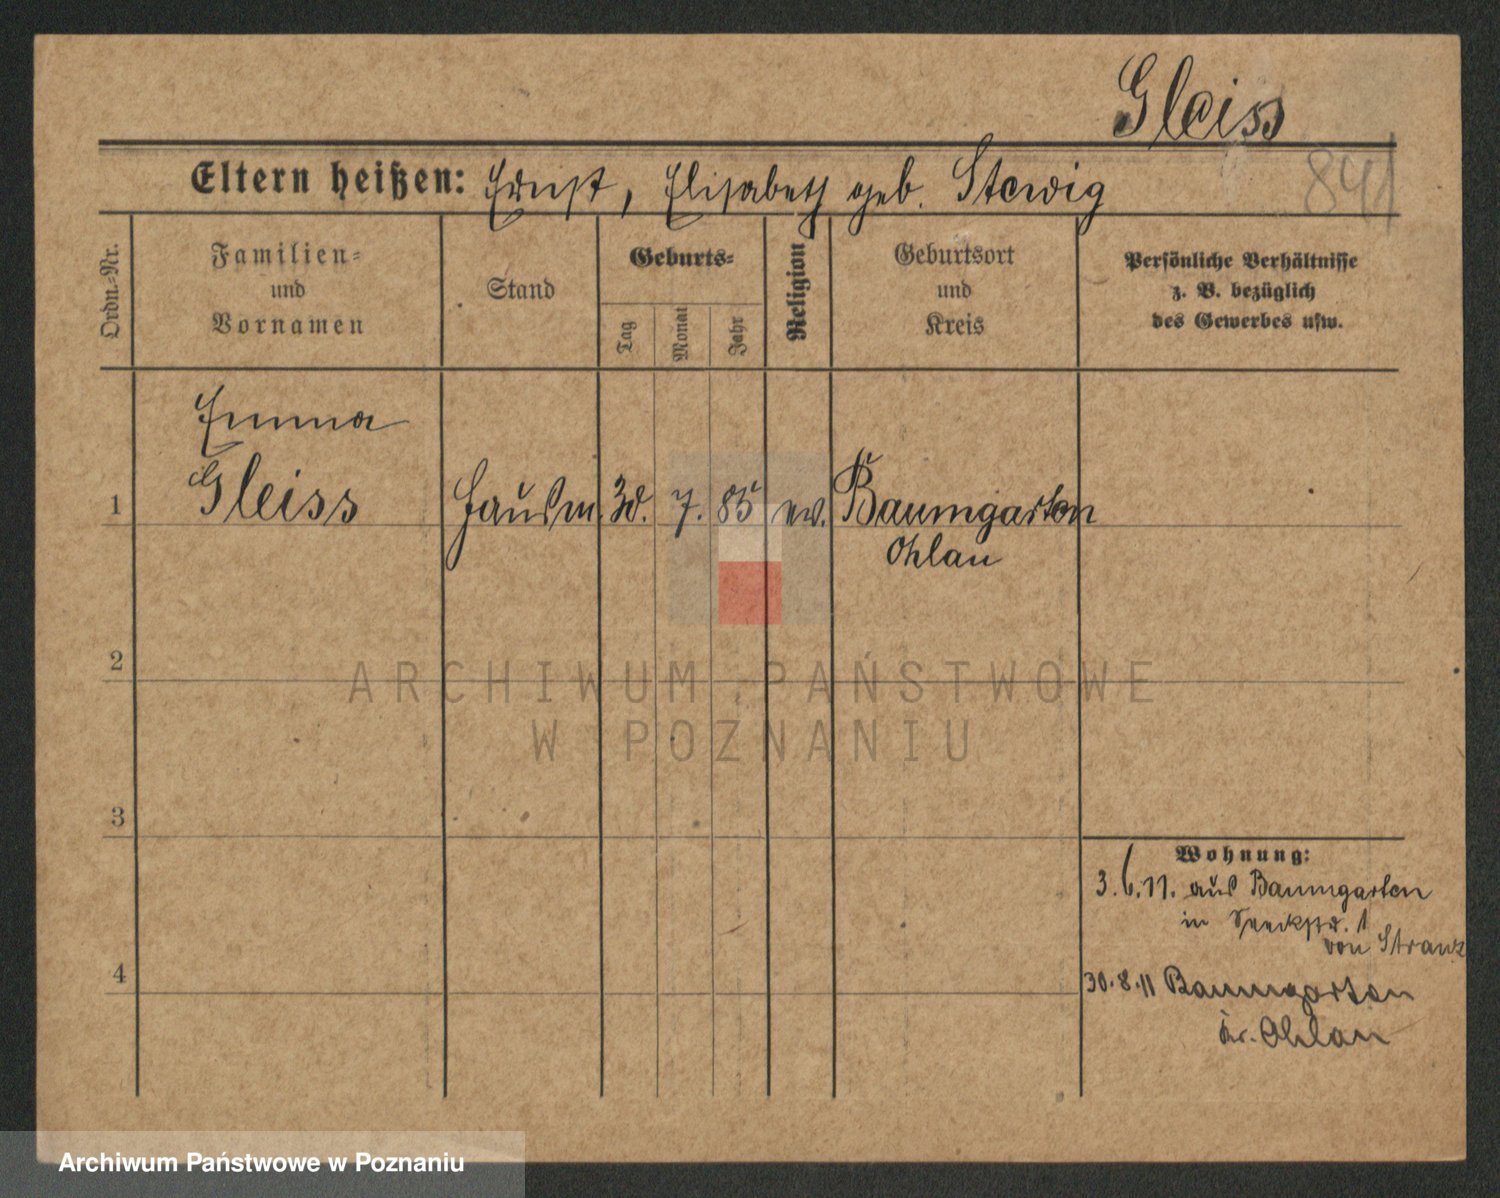 Gleiss
841
Eltern heißen: Ernst, Elisabeth geb. Stewig
Ordn.-Nr.
Familien-
und
Vornamen
Stand
Geburts-
Tag
Monat
Jahr
Religion
Geburtsort
und
Kreis
Persönliche Verhältnisse
z. B. bezüglich
des Gewerbes usw.
Emma
1 Gleiss Hausm. 30. 7. 85 ev. Baumgarten
Ohlau
2
ARCHIWUM PAŃSTWOWE
W POZNANIU
3
Wohnung:
3.6.11. aus Baumgarten
in 1
von Stranz
4
30.8.11 Baumgarten
Kr. Ohlau
Archiwum Państwowe w Poznaniu